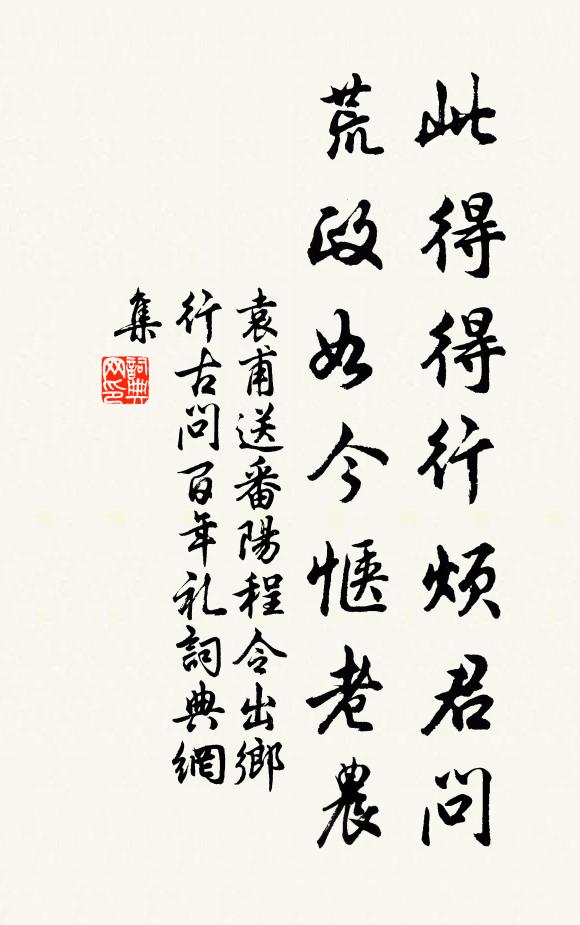 此得得行烦君问
荒政如今惬老農
袁甫送番陽程令出鄉
行古问百年礼詞典網
集
詞典网印